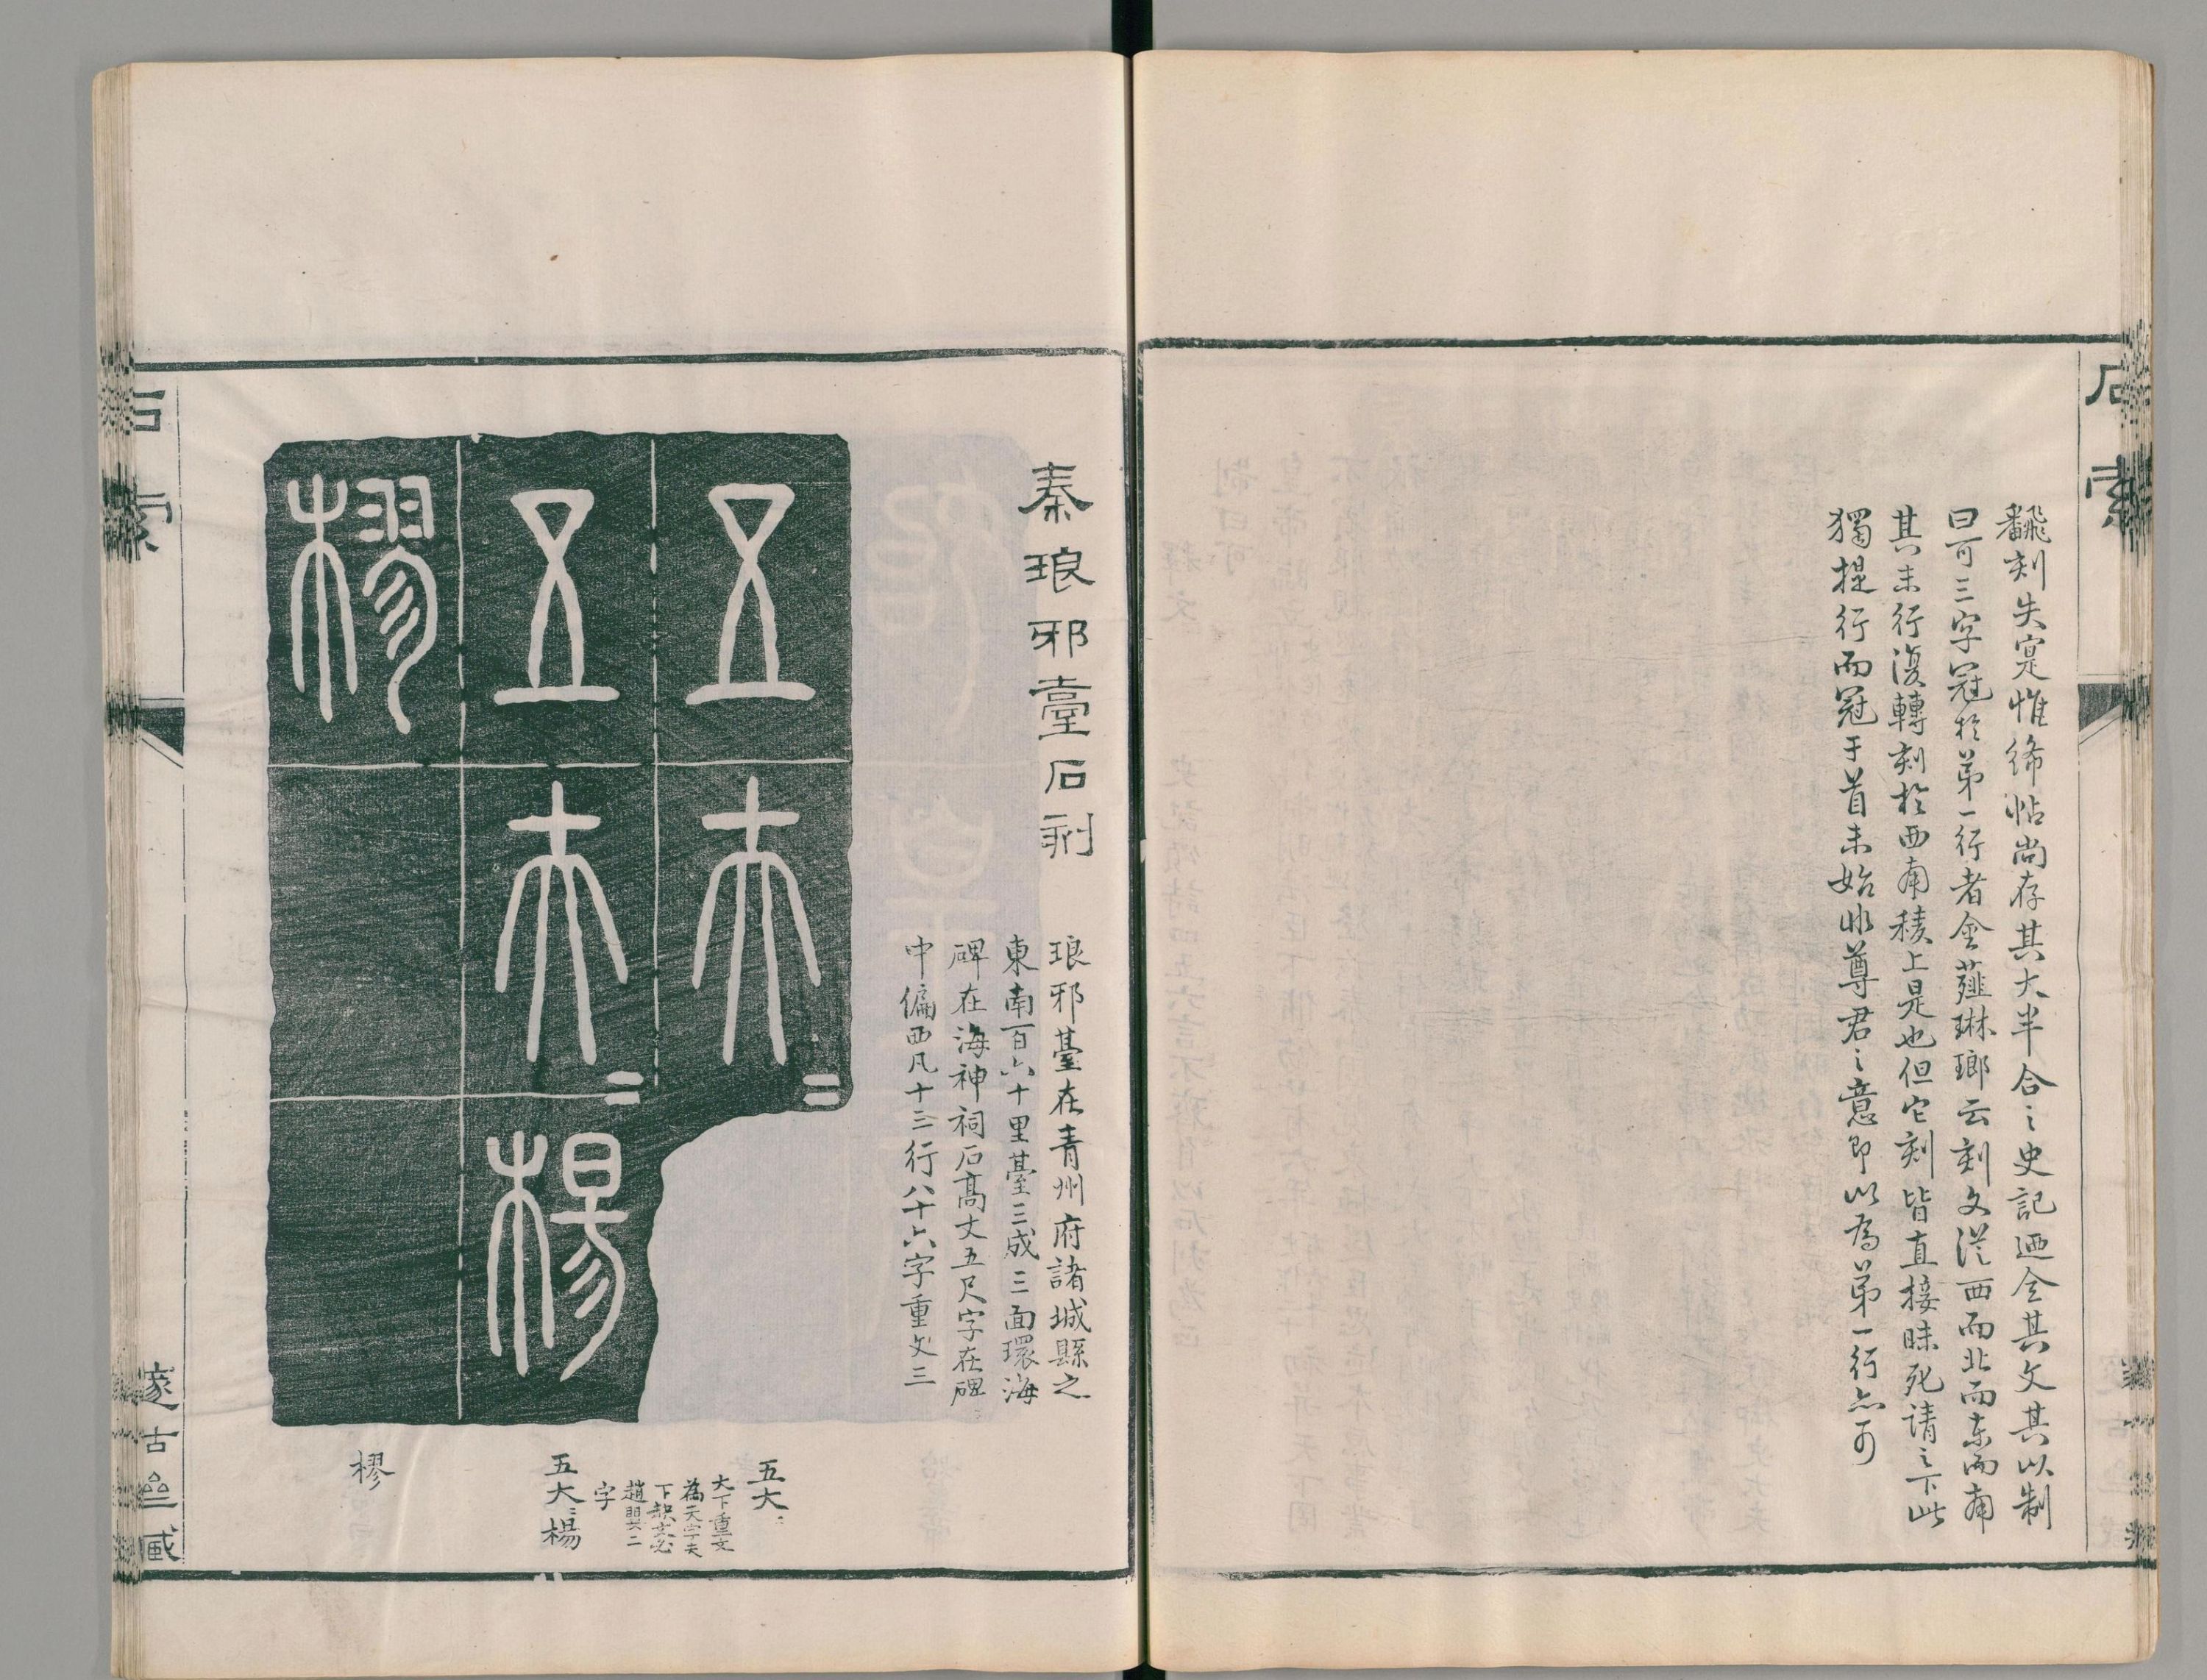 石索
飜刻失寔惟絳帖尚存其大半合之史記迺全其文其以制
曰可三字冠於第一行者金薤琳瑯云刻文從西而北而東而南
其末行復轉刻於西南稜上是也但它刻皆直接昧死請之下此
獨提行而冠于首未始非尊君之意即以為第一行亦可
秦琅邪臺石刻
琅邪臺在青州府諸城縣之
東南百六十里臺三成三面環海
碑在海神祠石高丈五尺字在碑
中偏西凡十三行八十六字重文三
五大=
五大=楊
樛
五大:
大下重文
為二大字夫
下缺
趙嬰二
字
五大:楊
樛
石索
邃古亝藏